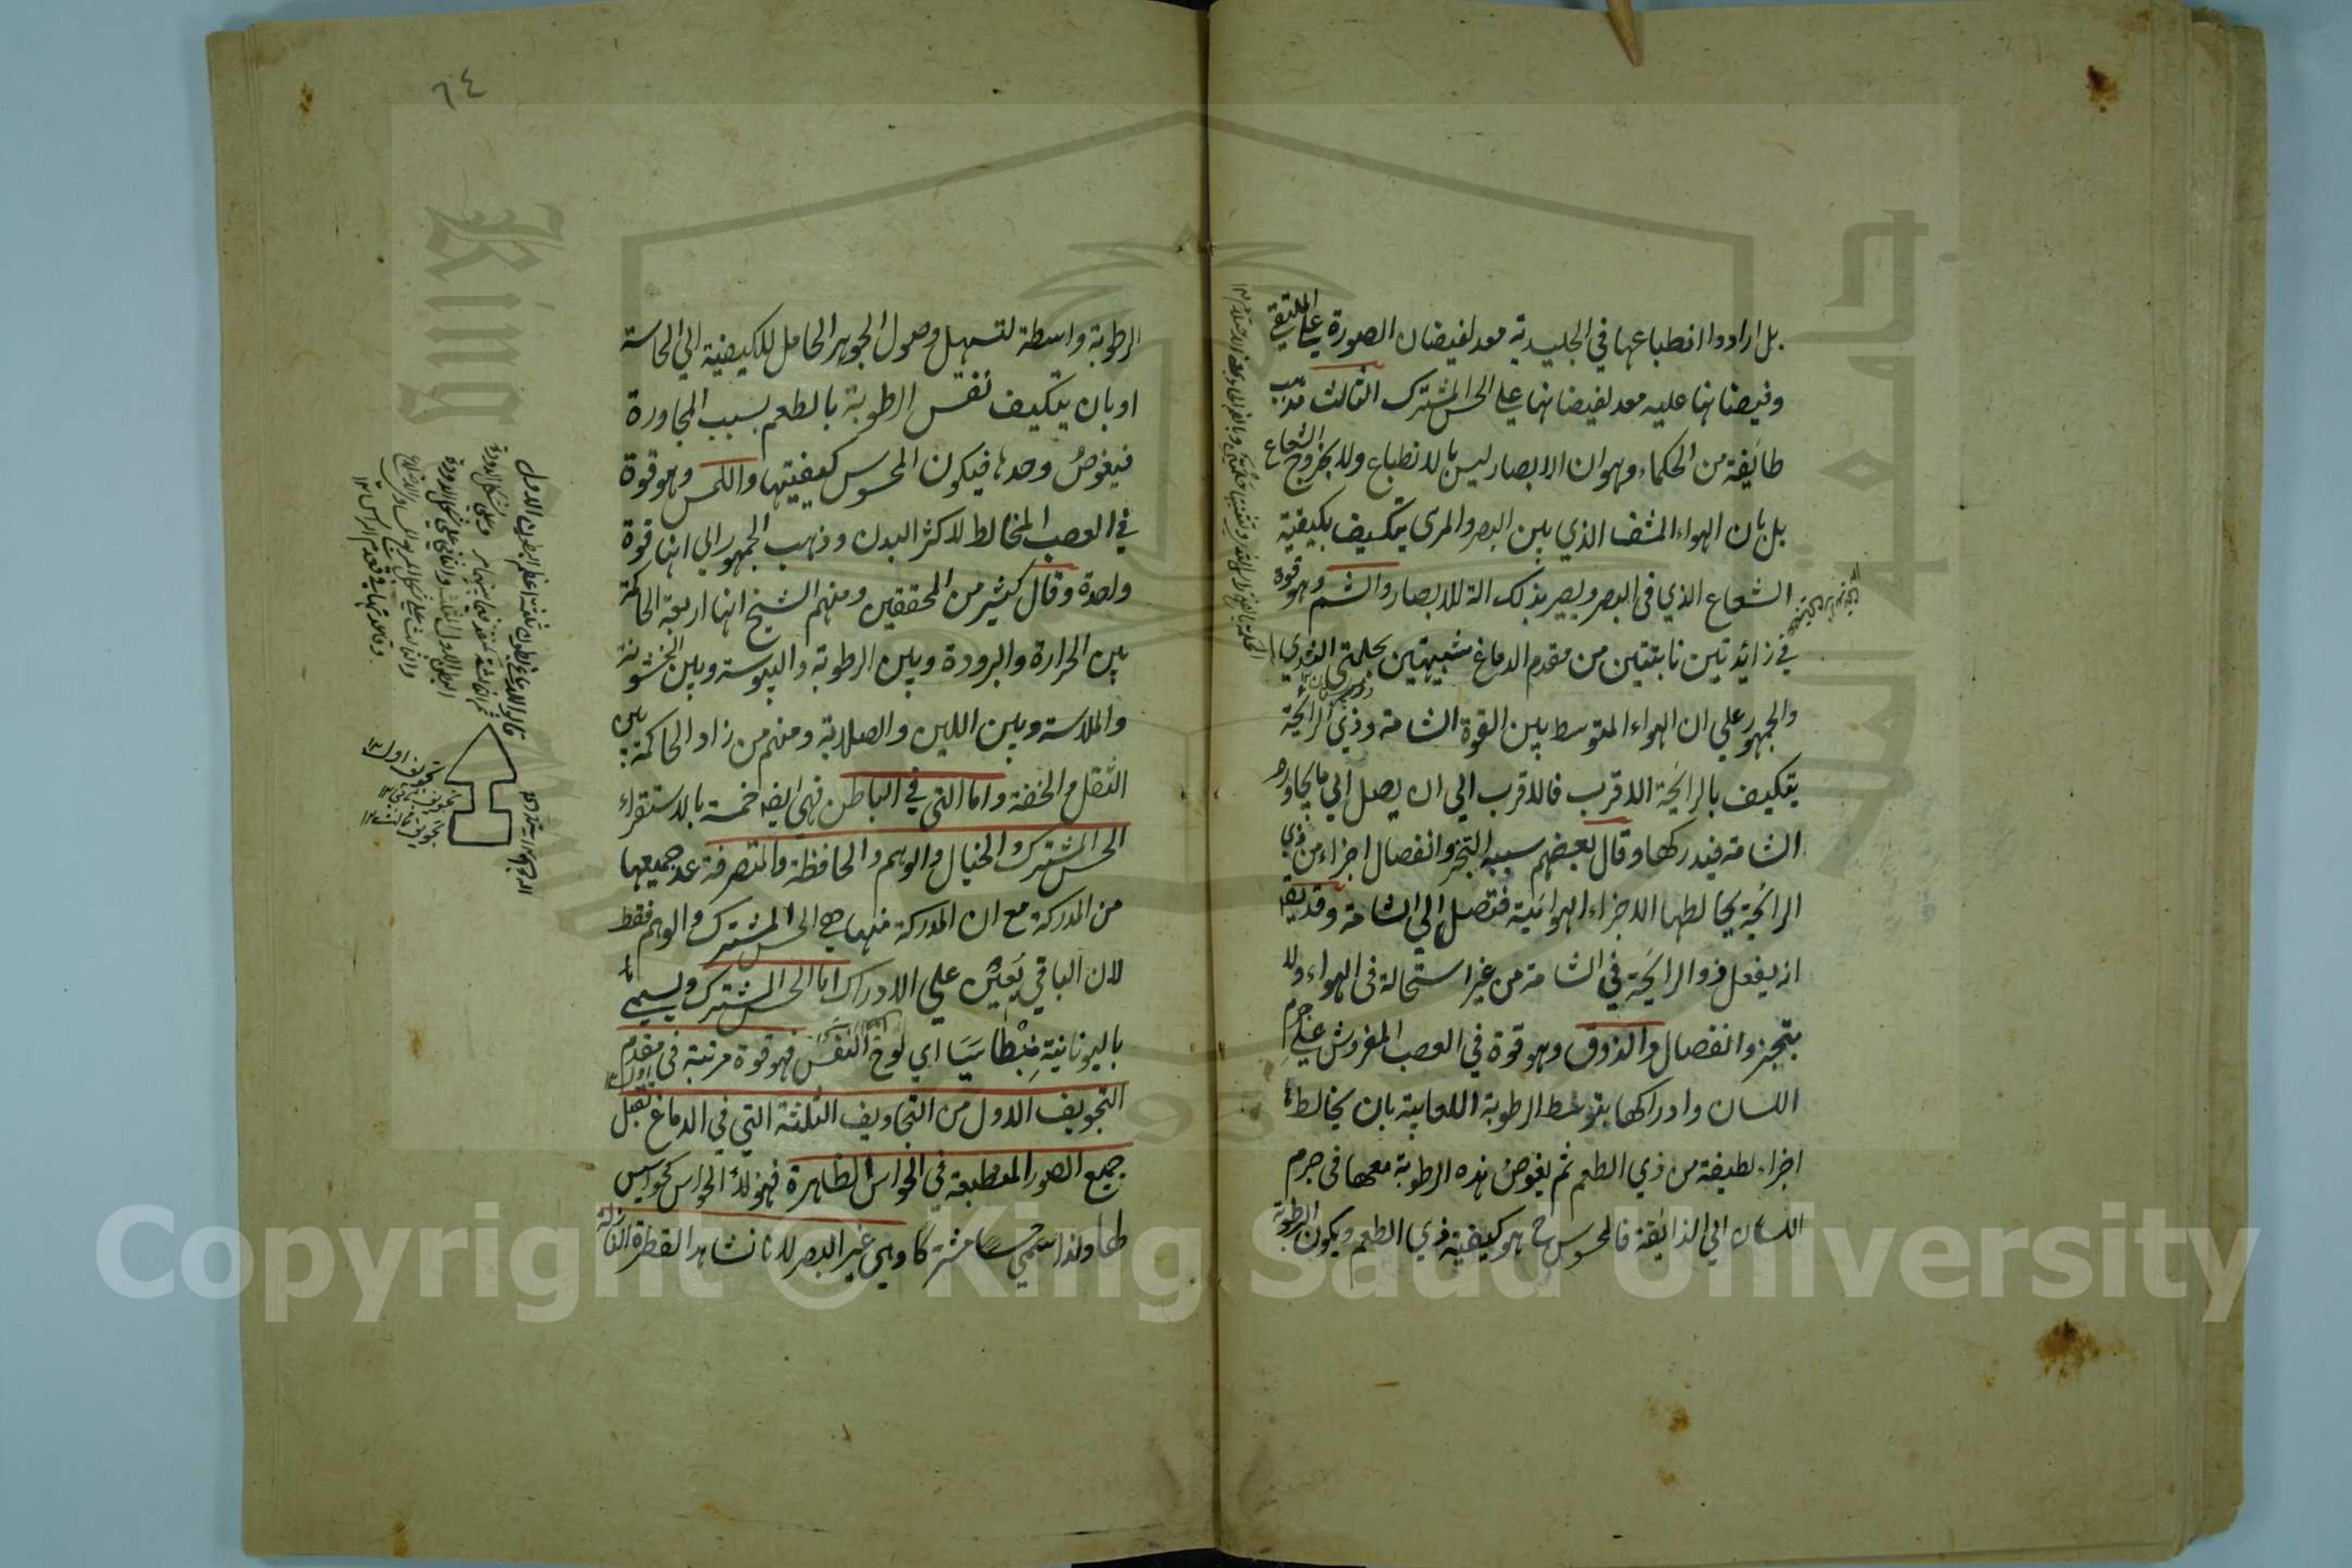 بل ارادوا انطباعها في الجليدية معد لفيضان الصورة علي الملتقي
وفيضانها عليه معد لفيضانها علي الحس المشترك الثالث مذهب
طائفة من الحكماء وهو ان الابصار ليس بالانطباع ولا بخروج الشعاع
بل بان الهواء المشف الذي بين البصر والمرئ يتكيف بكيفية
الشعاع الذي في البصر ويصير بذلك الة للابصار والشم وهو قوة
في زائدتين نابتتين من مقدم الدماغ شبيهتين بحلمتي الثدي
والجمهور علي ان الهواء المتوسط بين القوة الشامة وذي الرائحة
يتكيف بالرائحة الاقرب فالاقرب الي ان يصل الي ما يجاور
الشامة فيدركها وقال بعضهم سببه التبخر وانفصال اجزاء من ذي
الرائحة يخالطها الاجزاء الهوائية فتصل الي الشامة وقد يق
انه يفعل ذو الرائحة في الشامة من غير استحالة في الهواء ولا
بتبخر وانفصال والذوق وهو قوة في العصب المفروش علي جرم
اللسان وادراكها بتوسط الرطوبة اللعابية بان يخالطها
اجزاء لطيفة من ذي الطعم ثم يغوص هذه الرطوبة معها في جرم
اللسان الي الذائقة فالمحسوس ح هو كيفية ذي الطعم ويكون الرطوبة
٦٤
الرطوبة واسطة لتسهل وصول الجوهر الحامل للكيفية الي الحاسة
او بان يتكيف نفس الرطوبة بالطعم بسبب المجاورة
فيغوص وحدها فيكون المحسوس كيفيتها واللمس وهو قوة
في العصب المخالط لاكثر البدن وذهب الجمهور الي انها قوة
واحدة وقال كثير من المحققين ومنهم الشيخ انها اربعة الحاكمة
بين الحرارة والبرودة وبين الرطوبة واليبوسة وبين الخشونة
والملاسة وبين اللين والصلابة ومنهم من زاد الحاكمة بين
الثقل والخفة واما التي في الباطن فهي ايضا خمسة بالاستقراء
الحس المشترك والخيال والوهم والحافظة والمتصرفة عد جميعها
من المدركة مع ان المدركة منها هي الحس المشترك والوهم فقط
لان الباقي يعين علي الادراك اما الحس المشترك ويسمي
باليونانية بنطاسيا اي لوح النفس فهو قوة مرتبة في مقدم
التجويف الاول من التجاويف الثلثة التي في الدماغ تقبل
جميع الصور المنطبعة في الحواس الظاهرة فهؤلاء الحواس كجواسيس
لها ولذا سمي حسا مشتركا وهي غير البصر لانا نشاهد القطرة النازلة
تجويف اول ١٢
تجويف ثاني ١٢
تجويف ثالث ١٢
Copyright © King Saud University
King
1957